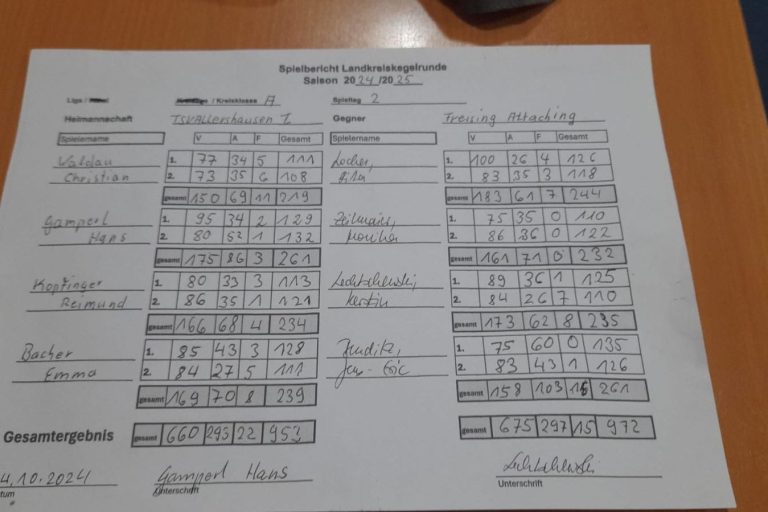 Spielbericht Landkreiskegelrunde
Saison 2024/2025
Liga / Kreisklasse A Spieltag 2
Heimmannschaft TSV Allershausen 1 Gegner Freising Attaching
Spielername V A F Gesamt Spielername V A F Gesamt
Waldau 1. 77 34 5 111 Locher, 1. 100 26 4 126
Christian 2. 73 35 6 108 2. 83 35 3 118
gesamt 150 69 11 219 gesamt 183 61 7 244
Gamperl 1. 95 34 2 129 1. 75 35 0 110
Hans 2. 80 52 1 132 Monika 2. 86 36 0 122
gesamt 175 86 3 261 gesamt 161 71 0 232
Kopfinger 1. 80 33 3 113 1. 89 36 1 125
Reimund 2. 86 35 1 121 Kerstin 2. 84 26 7 110
gesamt 166 68 4 234 gesamt 173 62 8 235
Bacher 1. 85 43 3 128 1. 75 60 0 135
Emma 2. 84 27 5 111 2. 83 43 1 126
gesamt 169 70 8 239 gesamt 158 103 261
Gesamtergebnis gesamt 660 293 22 953 gesamt 675 297 15 972
4.10.2024 Gamperl Hans
tum Unterschrift Unterschrift